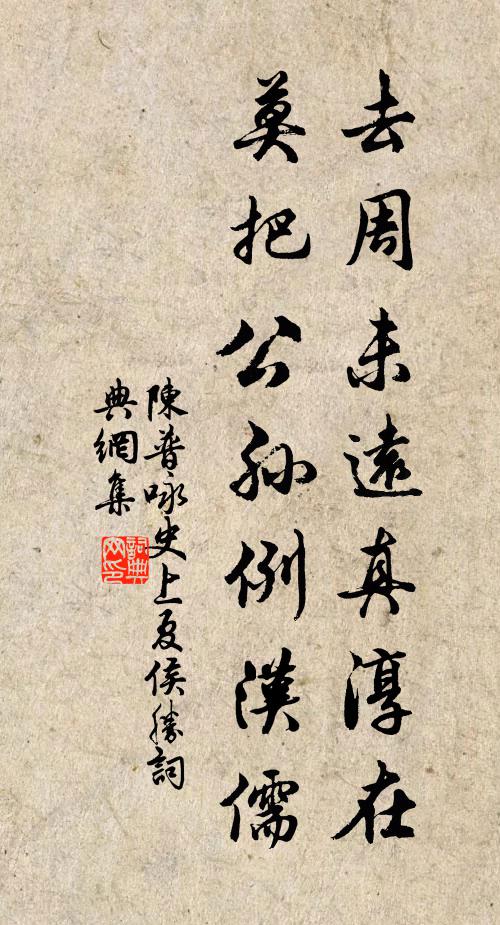 去周未遠真淳在
莫把公孫例漢儒
陳普咏史上夏侯勝詞
典網集
詞典網印